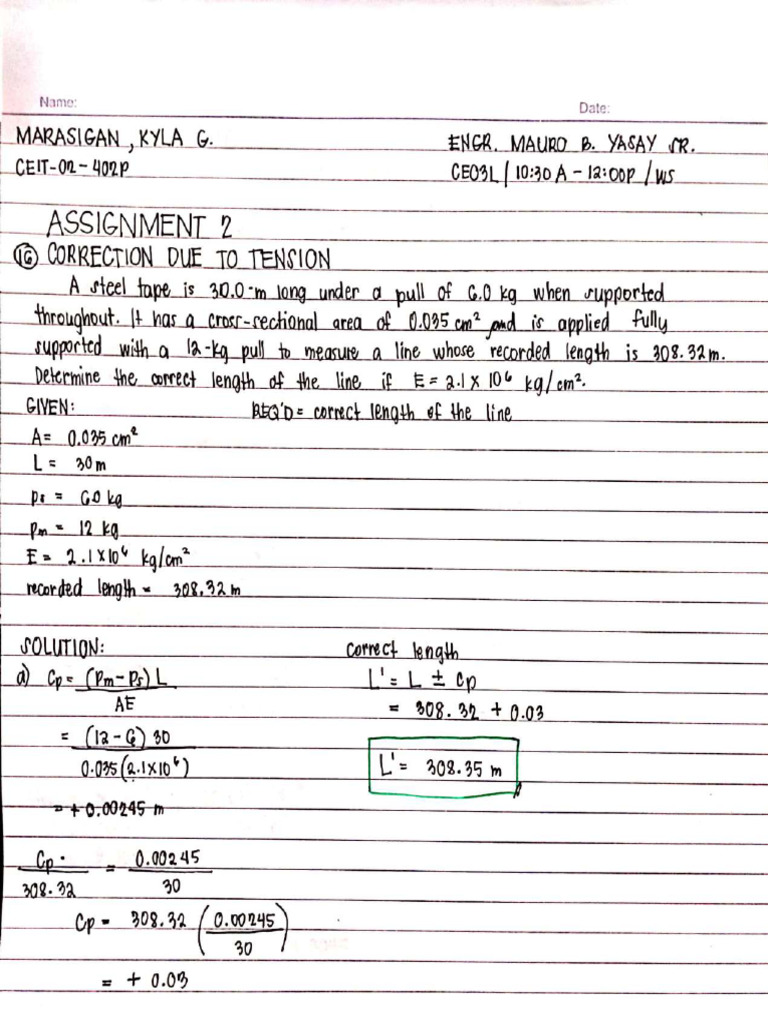 Name:
Date:
MARASIGAN, KYLA G.
ENGR. MAURO B. YASAY JR.
CEIT-02-402P
CE03L / 10:30 A - 12:00P / WS
ASSIGNMENT 2
16 CORRECTION DUE TO TENSION
A steel tape is 30.0-m long under a pull of 6.0 kg when supported
throughout. It has a cross-sectional area of 0.035 cm² and is applied fully
supported with a 12-kg pull to measure a line whose recorded length is 308.32 m.
Determine the correct length of the line if E = 2.1 x 10⁶ kg/cm².
GIVEN:
REQ'D = correct length of the line
A = 0.035 cm²
L = 30 m
Ps = 6.0 kg
Pm = 12 kg
E = 2.1 x 10⁶ kg/cm²
recorded length = 308.32 m
SOLUTION:
a) Cp = (Pm - Ps) L
AE
= (12 - 6) 30
0.035 (2.1x10⁶)
= + 0.00245 m
Cp = 0.00245
308.32 30
Cp = 308.32 (0.00245
30)
= + 0.03
correct length
L' = L ± Cp
= 308.32 + 0.03
L' = 308.35 m